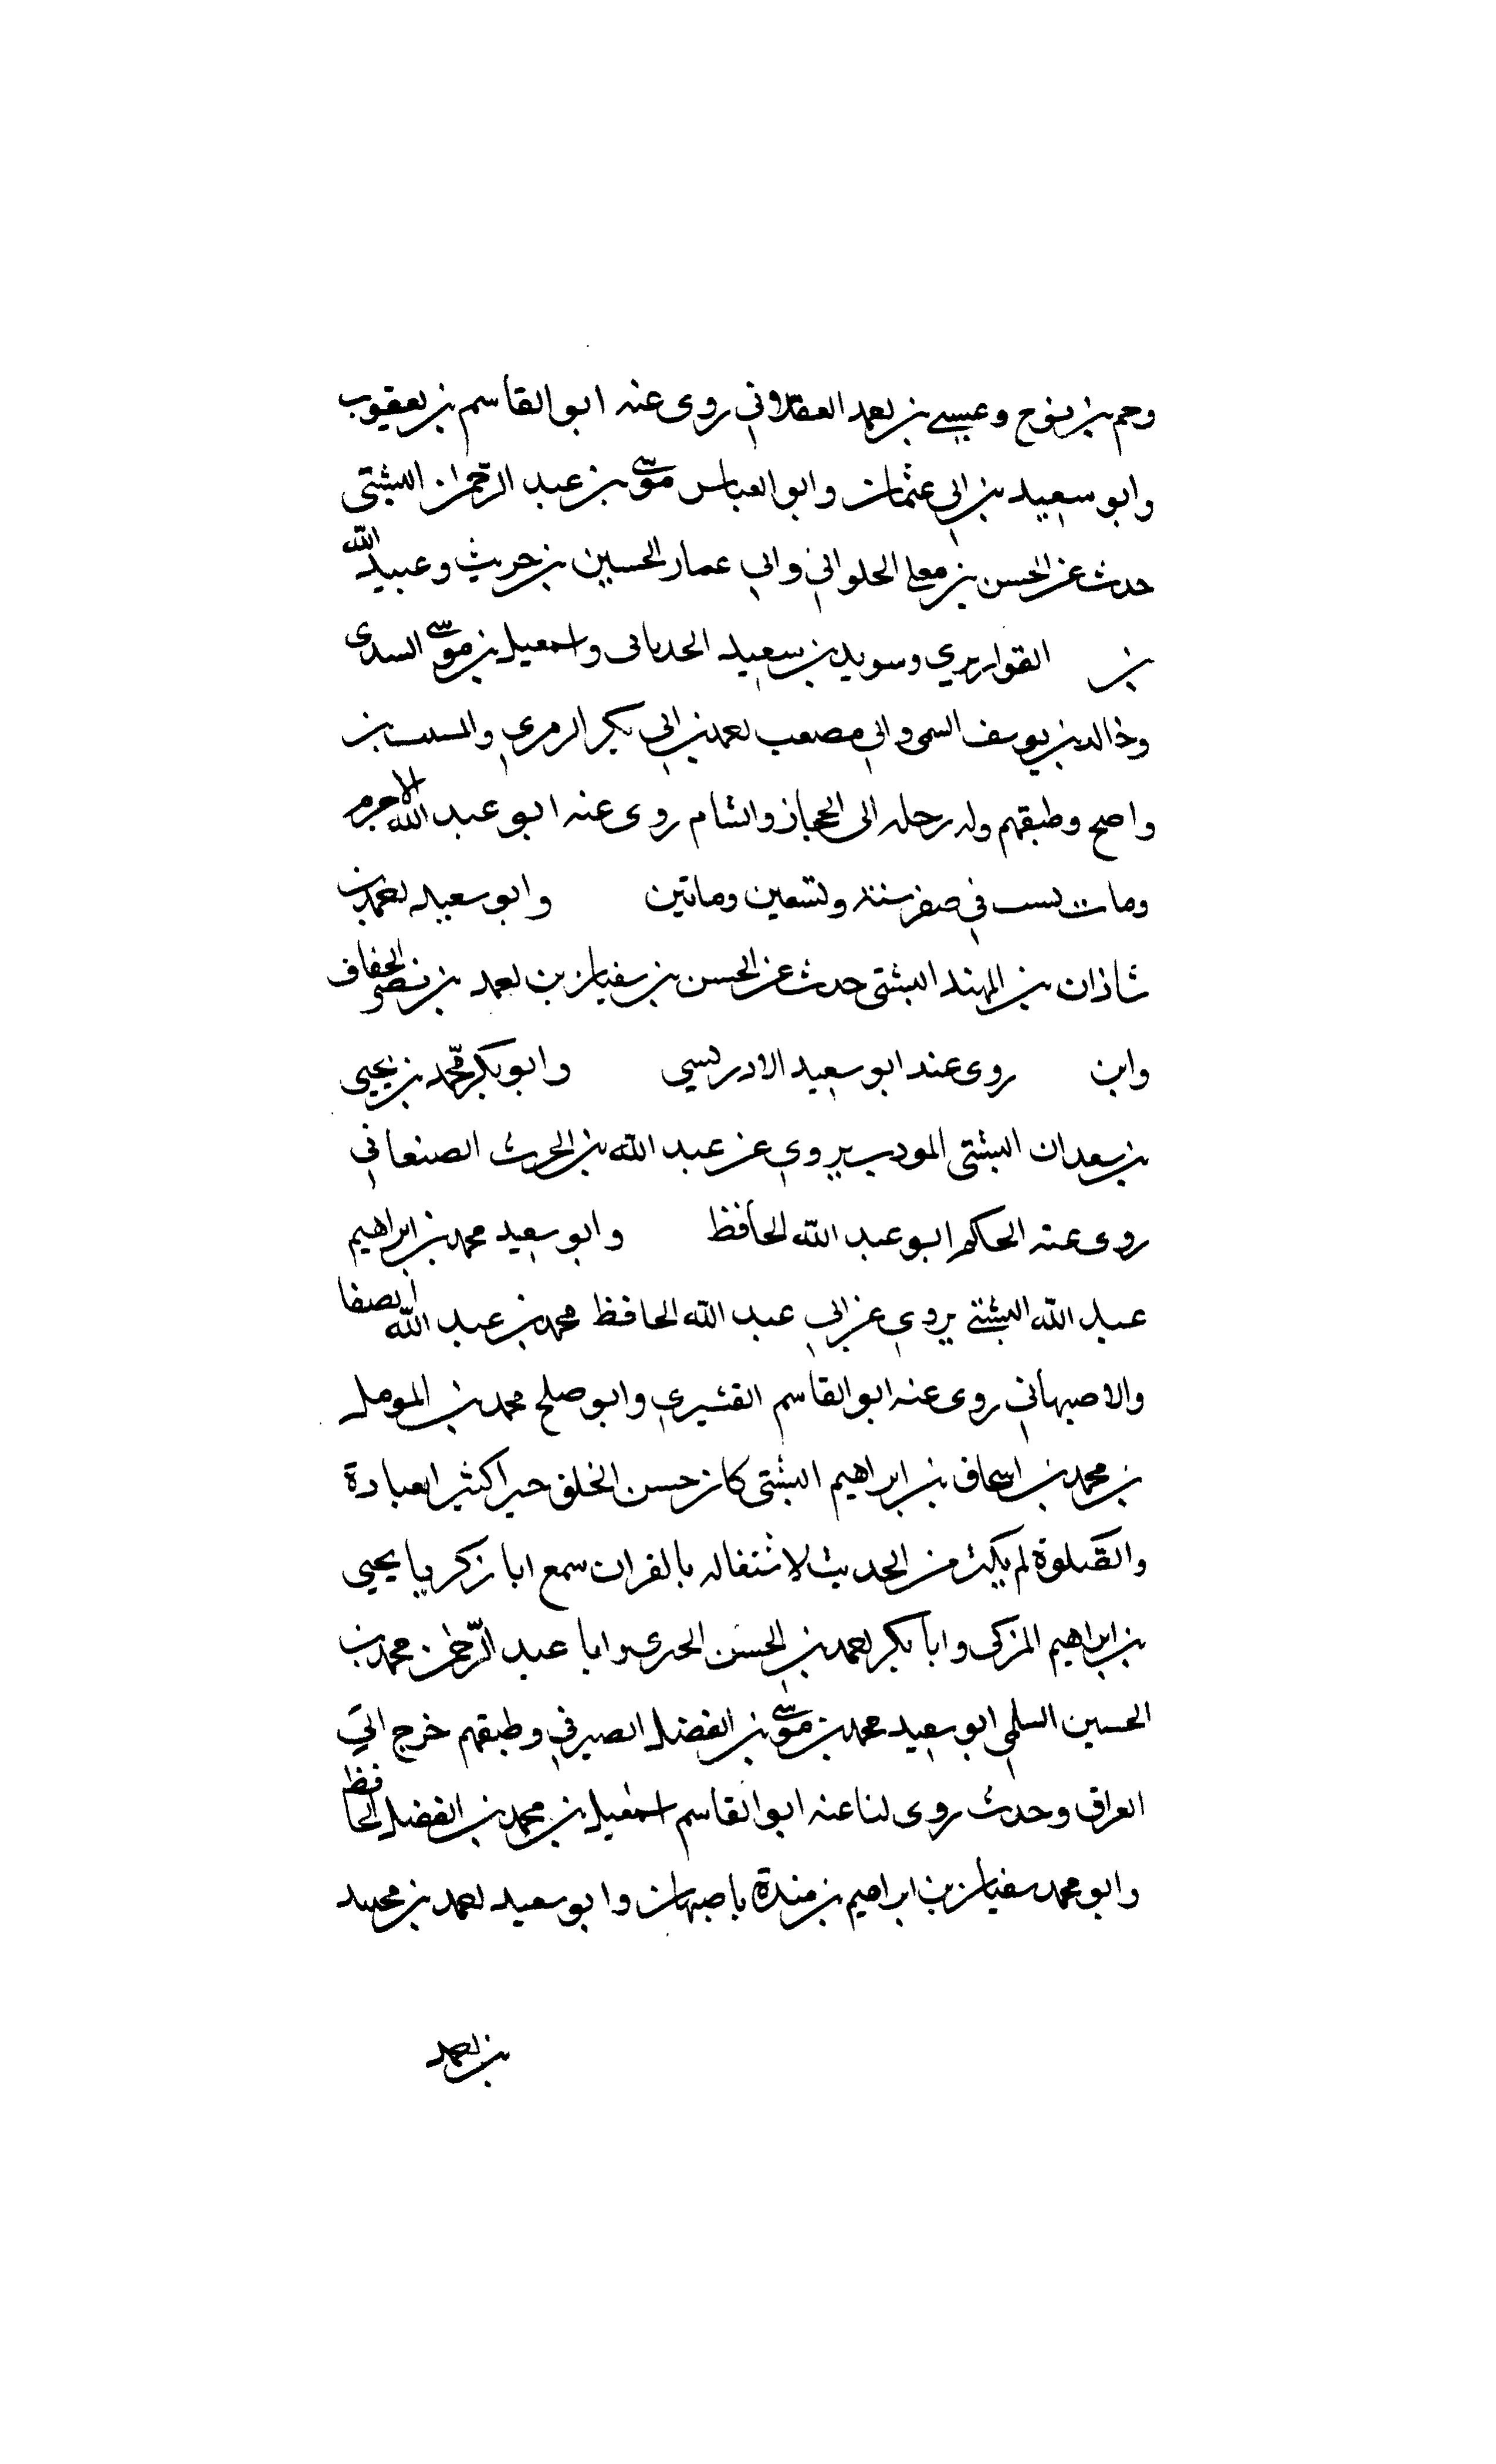 وحم بن نوح وعيسى بن احمد العسقلاني روى عنه ابو القاسم بن يعقوب
وابو سعيد بن ابي عثمان وابو العباس موسى بن عبد الرحمن البشتي
حدث عن الحسن بن علي الحلواني وابي عمار الحسين بن حريث وعبيد الله
بن القواريري وسويد بن سعيد الحدثاني واسمعيل بن موسى السدي
وخالد بن يوسف السمتي وابي مصعب احمد بن ابي بكر الزهري والمسيب بن
واضح وطبقتهم وله رحلة الى الحجاز والشام روى عنه ابو عبد الله الاخرم
ومات ببست في صفر سنة وتسعين ومائتين وابو سعيد احمد بن
شاذان بن المهند البشتي حدث عن الحسن بن سفيان بن احمد بن نصر الخفاف
وابن روى عنه ابو سعيد الادريسي وابو بكر محمد بن يحيى
بن سعدان البشتي المودب يروي عن عبد الله بن الحرث الصنعاني
روى عنه الحاكم ابو عبد الله الحافظ وابو سعيد محمد بن ابراهيم
عبد الله البشتي يروي عن ابي عبد الله الحافظ محمد بن عبد الله الصفا
والاصبهاني روى عنه ابو القاسم القشيري وابو صلح محمد بن المومل
بن محمد بن اسحاق بن ابراهيم البشتي كان حسن الخلق خيرا كثير العبادة
والصلوة لم يكثر من الحديث لاشتغاله بالقران سمع ابا زكريا يحيى
بن ابراهيم المزكي وابا بكر احمد بن الحسن الحيري وابا عبد الرحمن محمد بن
الحسين السلمي ابو سعيد محمد بن موسى بن الفضل الصيرفي وطبقتهم خرج الى
العراق وحدث روى لنا عنه ابو القاسم اسمعيل بن محمد بن الفضل الحافظ
وابو محمد سفيان بن ابراهيم بن مندة باصبهان وابو سعيد احمد بن محمد
بن احمد